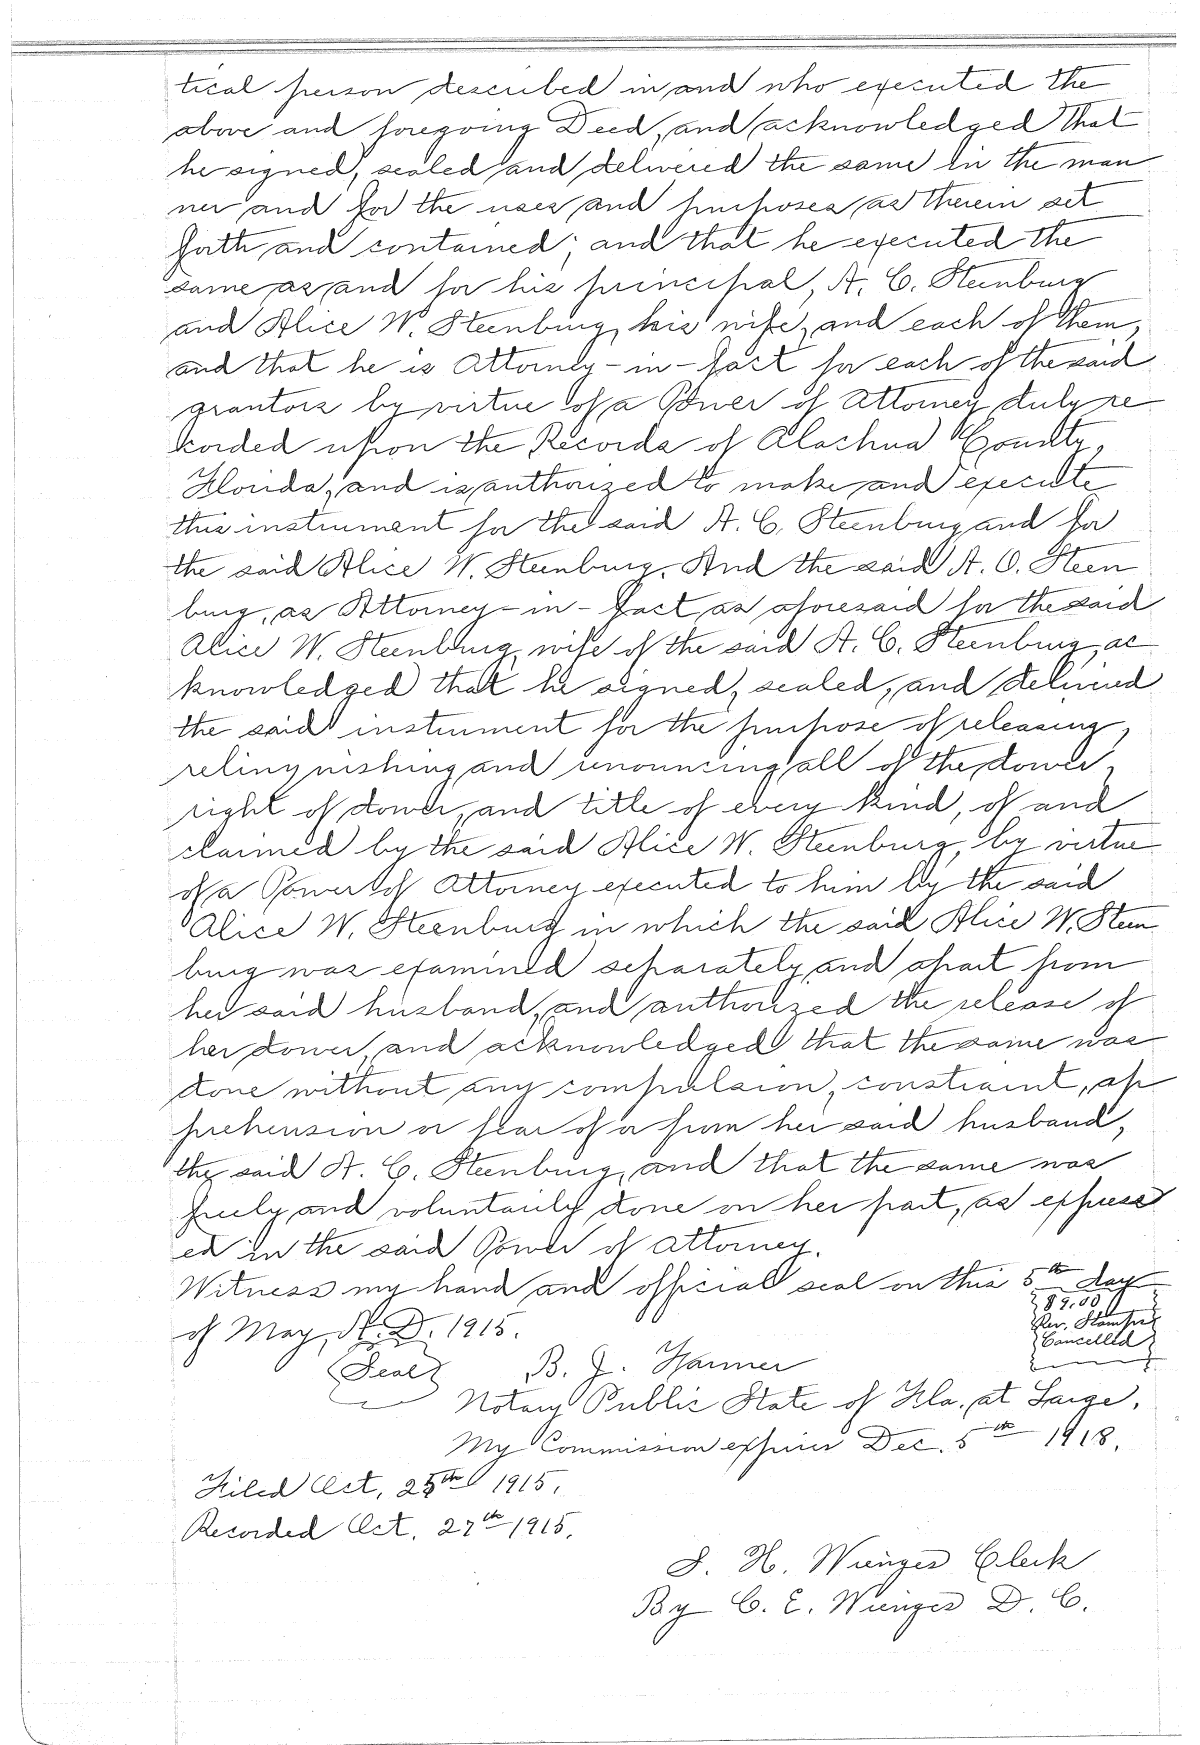 tical person described in and who executed the
above and foregoing Deed, and acknowledged that
he signed, sealed and delivered the same in the man
ner and for the uses and purposes as therein set
forth and contained; and that he executed the
same as and for his principal, A. C. Steenburg
and Alice W. Steenburg, his wife, and each of them,
and that he is Attorney-in-fact for each of the said
grantors by virtue of a Power of Attorney duly re
corded upon the Records of Alachua County,
Florida, and is authorized to make and execute
this instrument for the said A. C. Steenburg and for
the said Alice W. Steenburg. And the said A. O. Steen
burg, as Attorney-in-fact as aforesaid for the said
Alice W. Steenburg, wife of the said A. C. Steenburg, ac
knowledged that he signed, sealed, and delivered
the said instrument for the purpose of releasing,
relinquishing and renouncing all of the dower,
right of dower, and title of every kind, of and
claimed by the said Alice W. Steenburg, by virtue
of a Power of Attorney executed to him by the said
Alice W. Steenburg in which the said Alice W. Steen
burg was examined separately and apart from
her said husband, and authorized the release of
her dower, and acknowledged that the same was
done without any compulsion, constraint, ap
prehension or fear of or from her said husband,
the said A. C. Steenburg, and that the same was
freely and voluntarily done on her part, as express
ed in the said Power of Attorney.
Witness my hand and official seal on this 5th day
of May, A. D. 1915.
$9.00
Rev. Stamps
Cancelled
Seal
B. J. Farmer
Notary Public State of Fla. at Large.
My Commission expires Dec. 5th 1918.
Filed Oct. 25th 1915.
Recorded Oct. 27th 1915.
S. H. Wienges Clerk
By C. E. Wienges D. C.